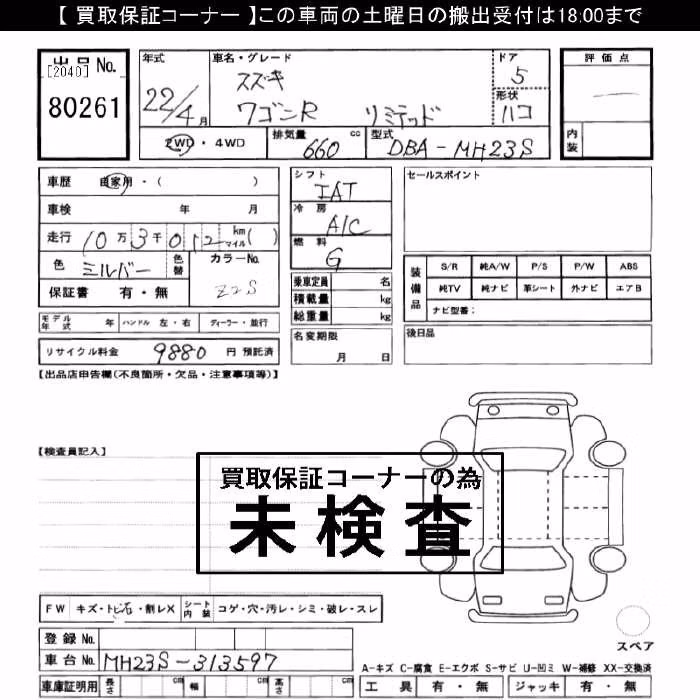 【 買取保証コーナー 】この車両の土曜日の搬出受付は18:00まで
出品 No.
[2040]
80261
年式
22/4月
車名・グレード
スズキ
ワゴンR リミテッド
ドア
5
形状
ハコ
評価点
内装
2WD・4WD
排気量 660 cc
型式 DBA-MH23S
車歴 自家用・( )
車検 年 月
走行 10万3千012 km マイル ( )
色 ミルバー 色替
カラーNo.
Z2S
保証書 有・無
シフト
IAT
冷房
A/C
燃料
G
乗車定員 名
積載量 kg
総重量 kg
セールスポイント
装備品
S/R 純A/W P/S P/W ABS
純TV 純ナビ 革シート 外ナビ エアB
ナビ型番:
モデル年式 年 ハンドル 左・右 ディーラー・並行
名変期限
月 日
後日品
リサイクル料金 9880 円 預託済
【出品店申告欄(不良箇所・欠品・注意事項等)】
【検査員記入】
買取保証コーナーの為
未検査
FW キズ・トビ石・割レX シート内装 コゲ・穴・汚レ・シミ・破レ・スレ
スペア
登録 No.
車台 No. MH23S-313597
A-キズ C-腐食 E-エクボ S-サビ U-凹ミ W-補修 XX-交換済
車庫証明用 長さ cm 幅 cm 高さ cm
工具 有・無 ジャッキ 有・無